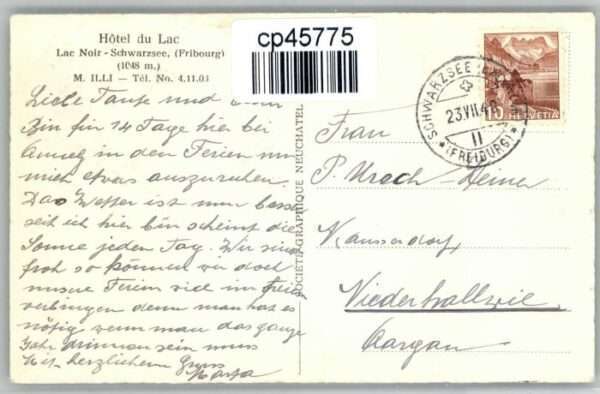 Hôtel du Lac
Lac Noir - Schwarzsee, (Fribourg)
(1048 m.)
M. ILLI — Tél. No. 4.11.03
cp45775
Liebe Tante und
Bin für 14 Tage hier bei
in den Ferien um
mich etwas auszuruhen.
Das Wetter ist nun besser
seit ich hier bin scheint die
Sonne jeden Tag. Wir sind
froh so können wir doch
unsere Ferien viel im freien
verbringen denn man hat es
nötig wenn man das ganze
Jahr drinnen sein muss
Mit herzlichem Gruss
SOCIÉTÉ GRAPHIQUE NEUCHATEL
SCHWARZSEE
23.VII.48
II
(FREIBURG)
10
HELVETIA
Frau
P. Urech-
Niederhallwil
Aargau